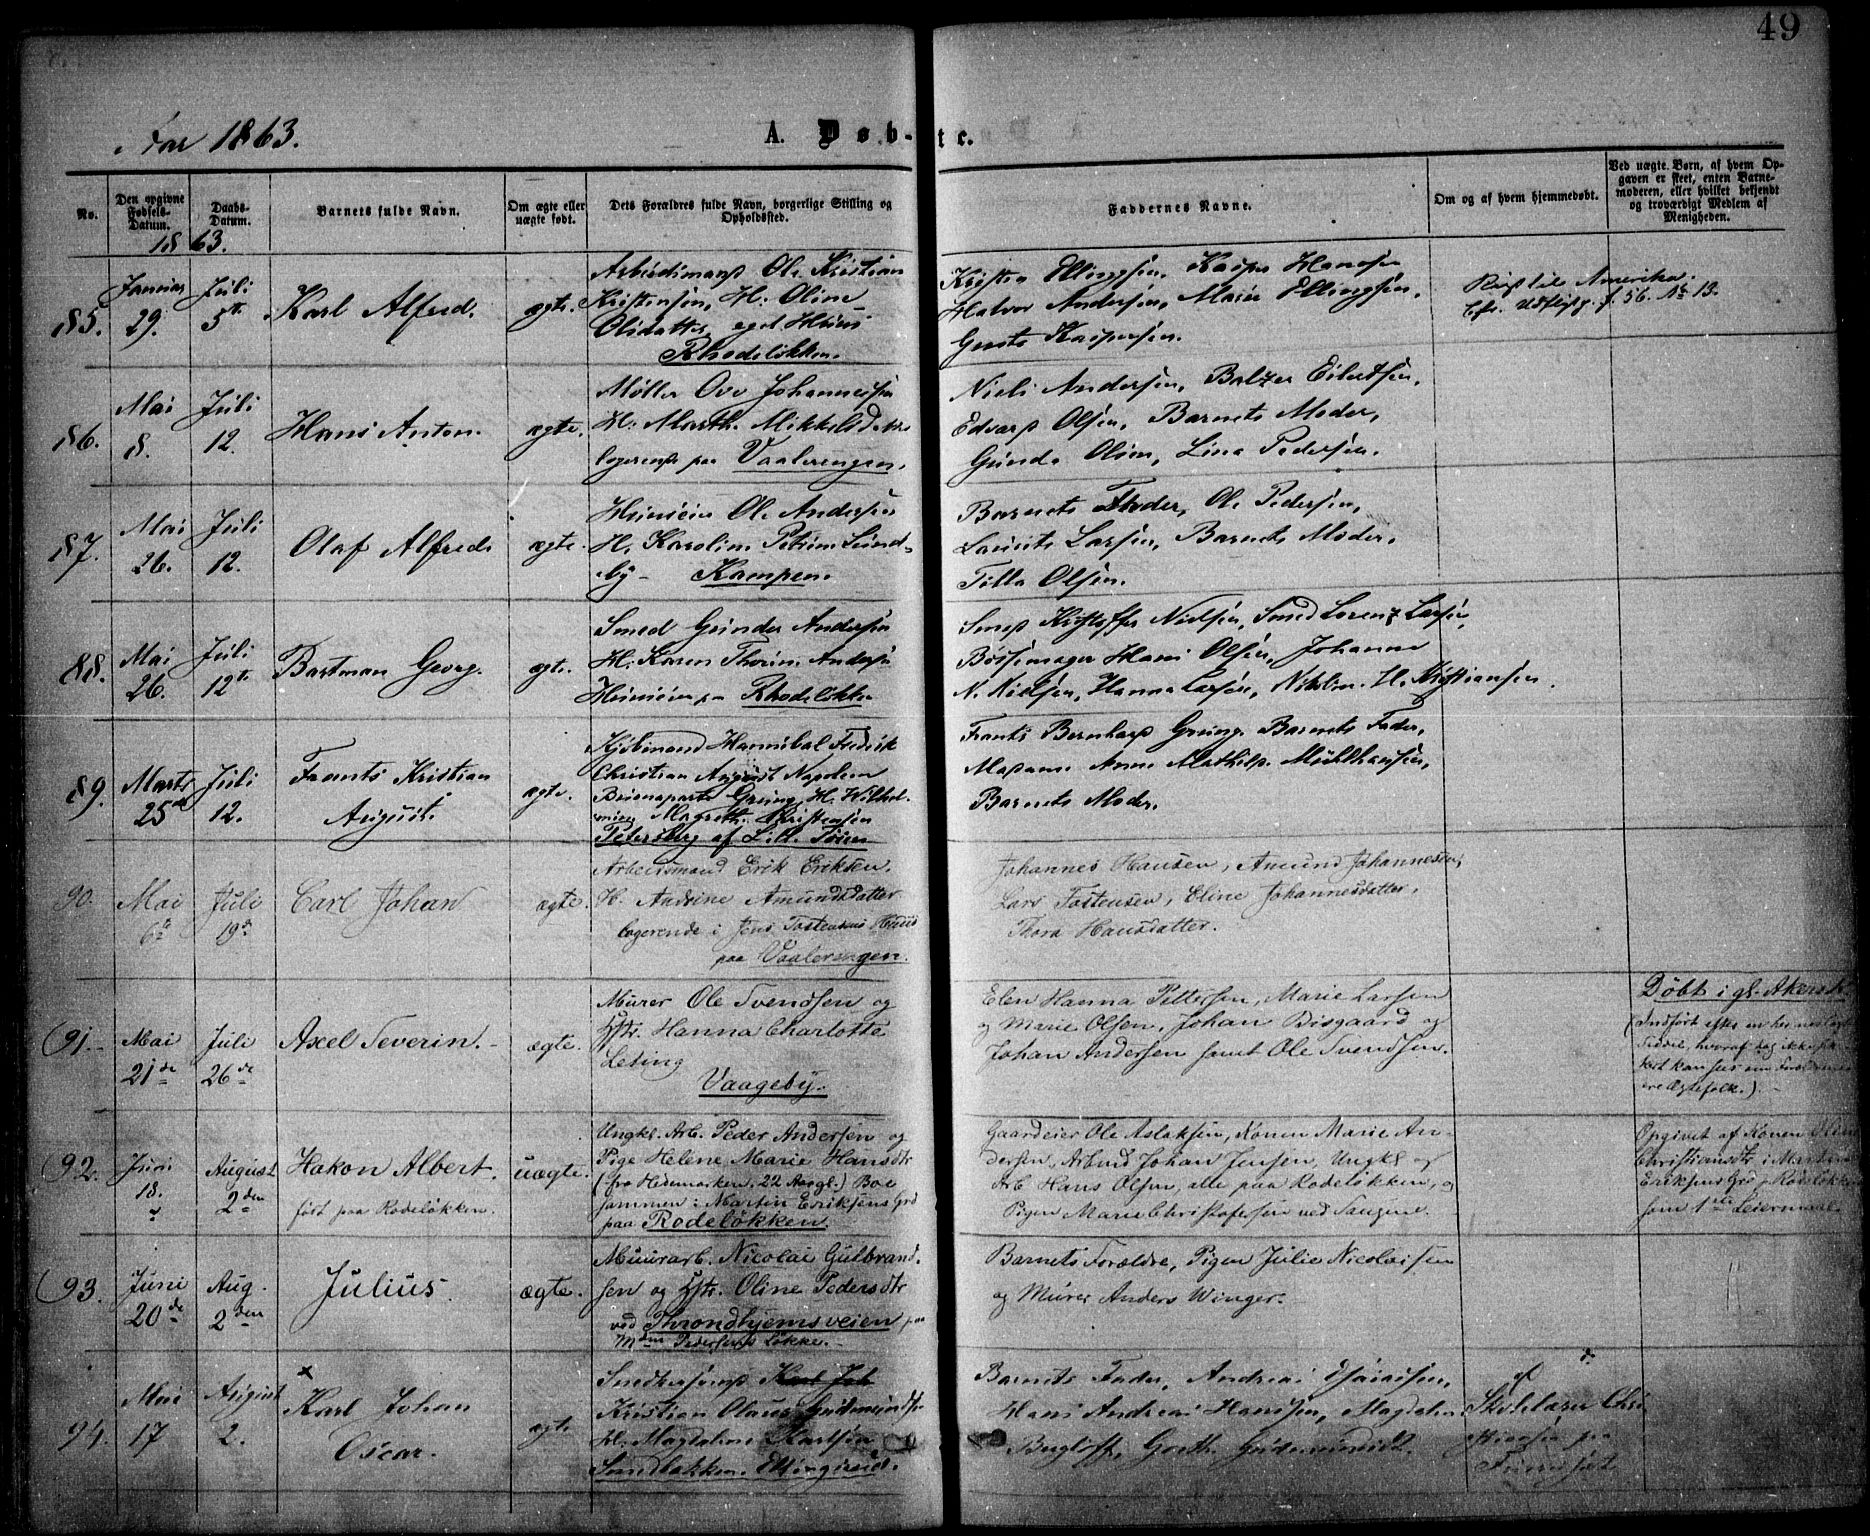 49
For 1863.
A. Døbte.
No.
Den opgivne Fødsels-Datum.
Daabs-Datum.
Barnets fulde Navn.
Om ægte eller uægte født.
Dets Forældres fulde Navn, borgerlige Stilling og Opholdssted.
Faddernes Navne.
Om og af hvem hjemmedøbt.
Ved uægte Børn, af hvem Opgaven er skeet, enten Barnemoderen, eller hvilket bekjendt og troværdigt Medlem af Menigheden.
1863.
85.
Januar
29.
Juli
5te
Karl Alfred.
ægte.
Arbeidsmand Ole Kristian
Kristensen, H: Oline
Olsdatter, eget Huus
Rhodeløkken.
Ellingsen, Kasper Hansen
Halvor Andersen, Marie Ellingsen,
Kaspersen.
Reist til Amerika.
f. 56. No 13.
86.
Mai
8.
Juli
12.
Hans Anton.
ægte.
Møller Ove Johannesen
H: Marthe Mikkelsdatter
logerende paa Vaalerengen.
Niels Andersen, Balzer Eilertsen,
Edvard Olsen, Barnets Moder,
Gunda Olsen, Lina Pedersen.
87.
Mai
26.
Juli
12.
Olaf Alfred.
ægte.
Huuseier Ole Andersen
H. Karoline Petrine Sund-
by - Kampen.
Barnets Fader, Ole Pedersen,
Laurits Larsen, Barnets Moder,
Tilla Olsen.
88.
Mai
26.
Juli
12te
Bartman Georg.
ægte.
Smed Gunder Andersen
H: Karen Thorine Andersen
Huuseier paa Rhodeløkken
Smed Kristoffer Nielsen, Smed Lorenz Larsen,
Bøssemager Hans Olsen, Johanne
N. Nielsen, Hanna Larsen, Nikoline H. Kristiansen.
89.
Marts
25de
Juli
12.
Frants Kristian
August.
ægte.
Kjøbmand Hannibal Fredrik
Christian August Napoleon
Buonaparte Grung, H. Wilhel-
mine Magrethe Kristensen
Petersborg af Lille Tøien
Frants Bernhard Grung, Barnets Fader,
Madame Anne Mathilde Mühlhausen,
Barnets Moder.
90.
Mai
6te
Juli
19de
Carl Johan
ægte.
Arbeidsmand Erik Eriksen.
H. Andrine Amundsdatter
logerende i Jens Tostensens Huus
paa Vaalerengen.
Johannes Hansen, Amund Johannesen,
Lars Tostensen, Eline Johannesdatter,
Thora Hansdatter.
(91.
Mai
21de
Juli
26de
Axel Severin.
ægte.
Murer Ole Svendsen og
Hstr. Hanna Charlotte
Leting
Vaageby.
Elen Hanna Pettersen, Marie Larsen
og Marie Olsen, Johan Bisgaard og
Johan Andersen samt Ole Svendsen.
Døbt i gl. Akers K.
(Indført efter en
Seddel, hvoraf dog ikke sik-
kert kan sees om Forældrene
ere Ægtefolk.)
(92.
Juni
18.
August
2den
Hakon Albert.
født paa Rodeløkken.
uægte.
Ungkl. Arb. Peder Andersen og
Pige Helene Marie Hansdtr
(fra Hedemarken, 22 Aar gl.) Boe
sammen i Martin Eriksens Grd
paa Rodeløkken.
Gaardeier Ole Aslaksen, Konen Marie An-
dersen, Arbmd Johan Jensen, Ungkl og
Arb. Hans Olsen, alle paa Rodeløkken, og
Pigen Marie Christofersen ved Saugene.
Opgivet af Konen Oline
Christiansdtr i Martin
Eriksens Grd p. Rodeløkken
som 1ste Leiermaal.
(93.
Juni
20de
Aug.
2den
Julius.
ægte.
Muurarb. Nicolai Gulbrand-
sen og Hstr. Oline Pedersdtr
ved Throndhjemsveien paa
Mdm Pedersens Løkke.
Barnets Forældre, Pigen Julie Nicolaisen
og Murer Anders Winger.
94.
Mai
17
August
2.
Karl Johan
Oscar.
ægte
Snedkersvend Karl Joh
Kristian Olaus Gudmundsen
H: Magdalene Karlsen
Smedbakken.
Barnets Fader, Andreas Esaiasen,
Hans Andreas Hansen, Magdalene
af
Skolelærer Chri